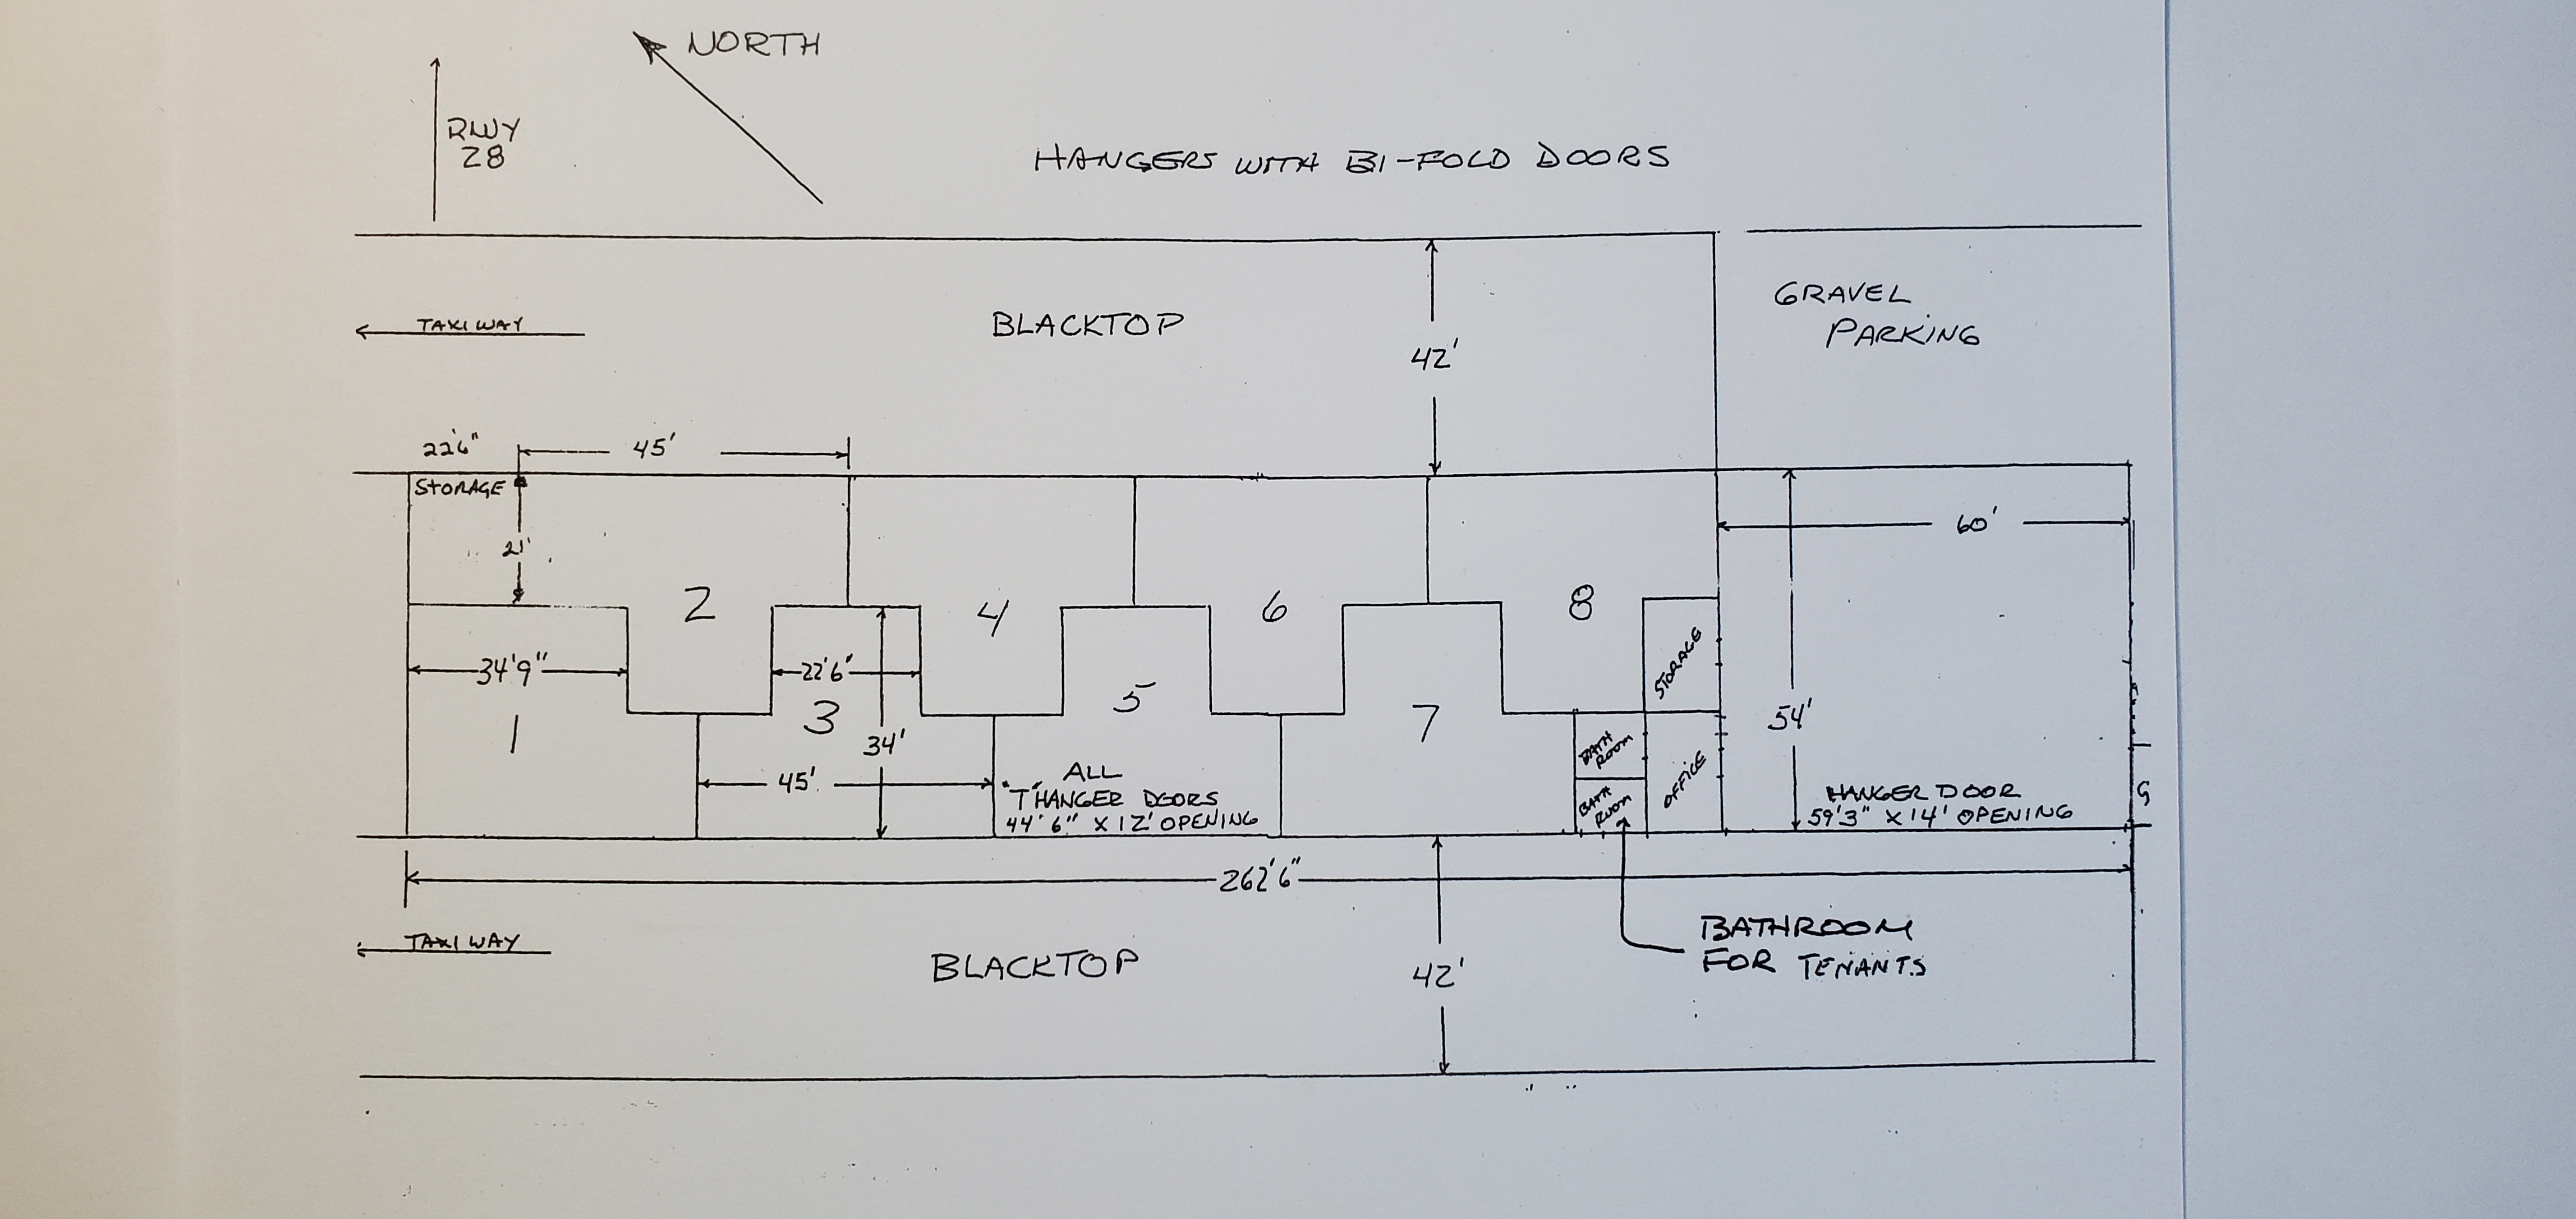 NORTH
RWY
28
HANGERS WITH BI-FOLD DOORS
GRAVEL
PARKING
TAXIWAY
BLACKTOP
42'
22'6"
45'
STORAGE
21'
60'
2
4
6
8
STORAGE
34'9"
22'6"
1
3
5
7
34'
54'
BATH
ROOM
OFFICE
45'
ALL
"T" HANGER DOORS
44'6" X 12' OPENING
BATH
ROOM
HANGER DOOR
59'3" X 14' OPENING
G
262'6"
TAXIWAY
BLACKTOP
42'
BATHROOM
FOR TENANTS